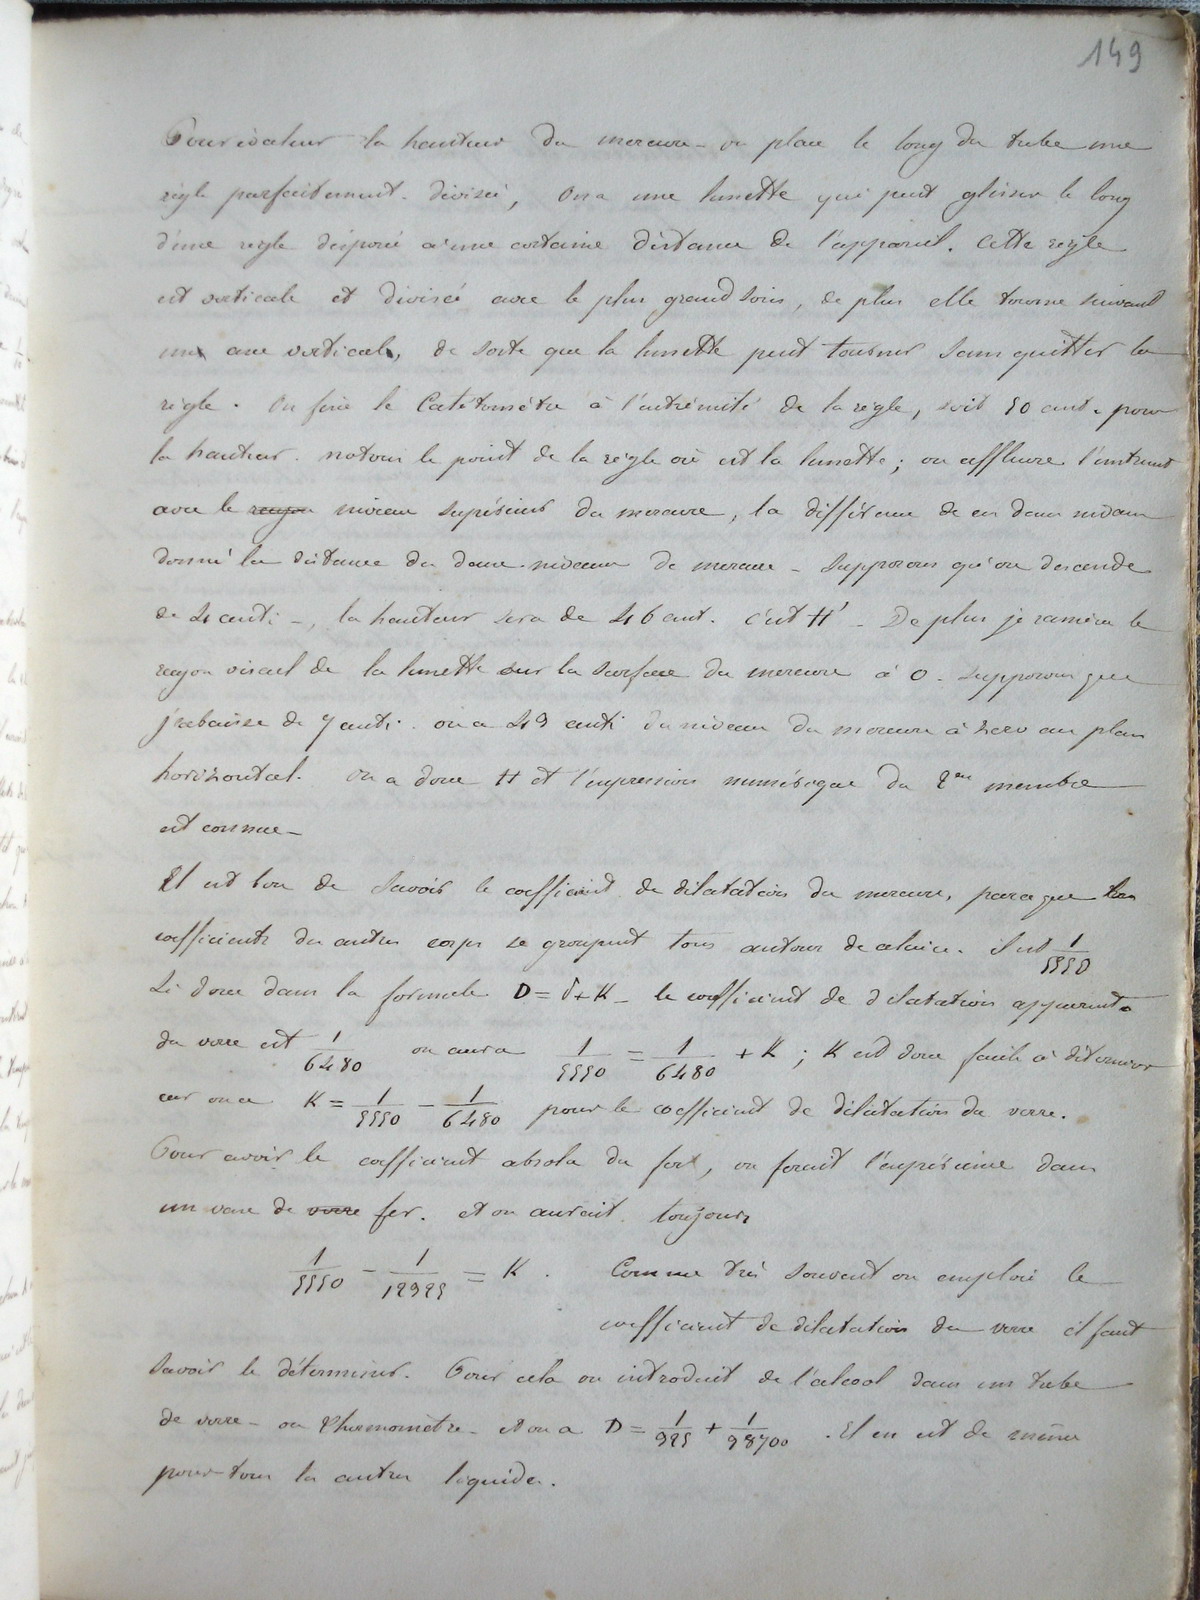 149
Pour évaluer la hauteur du mercure - on place le long du tube une
règle parfaitement divisée, on a une lunette qui peut glisser le long
d'une règle disposée à une certaine distance de l'appareil. Cette règle
est verticale et divisée avec le plus grand soin, de plus elle tourne suivant
une axe vertical, de sorte que la lunette peut tourner sans quitter la
règle. On fixe le Catétomètre à l'extrémité de la règle, soit 50 cent. pour
la hauteur. notons le point de la règle où est la lunette; on affleure
avec le rayon niveau supérieur du mercure, la différence de ces deux niveaux
donne la distance des deux niveaux de mercure - Supposons qu'on descende
de 4 centi -, la hauteur sera de 46 cent. c'est H' - De plus je ramène le
rayon visuel de la lunette sur la surface du mercure à 0. supposons que
j'rabaisse de 7 centi. on a 49 centi du niveau du mercure à zero au plan
horizontal. On a donc H et l'expression numérique du 2em membre
est connue -
Il est bon de savoir le coefficient de dilatation du mercure, parceque les
coefficients des autres corps se groupent tous autour de celui ci. il est 1/5550
Si donc dans la formule D = δ + K - le coefficient de dilatation apparente
du verre est 1/6480 on aura 1/5550 = 1/6480 + K ; K est donc facile à déterminer
car on a K = 1/5550 - 1/6480 pour le coefficient de dilatation du verre.
Pour avoir le coefficient absolu du fer, on ferait l'expérience dans
un vase de verre fer. et on aurait toujours
1/5550 - 1/12925 = K . Comme très souvent on emploie le
coefficient de dilatation du verre il faut
savoir le déterminer. Pour cela on introduit de l'alcool dans un tube
de verre - ou thermomètre - et on a D = 1/925 + 1/98700 . Il en est de même
pour tous les autres liquides.